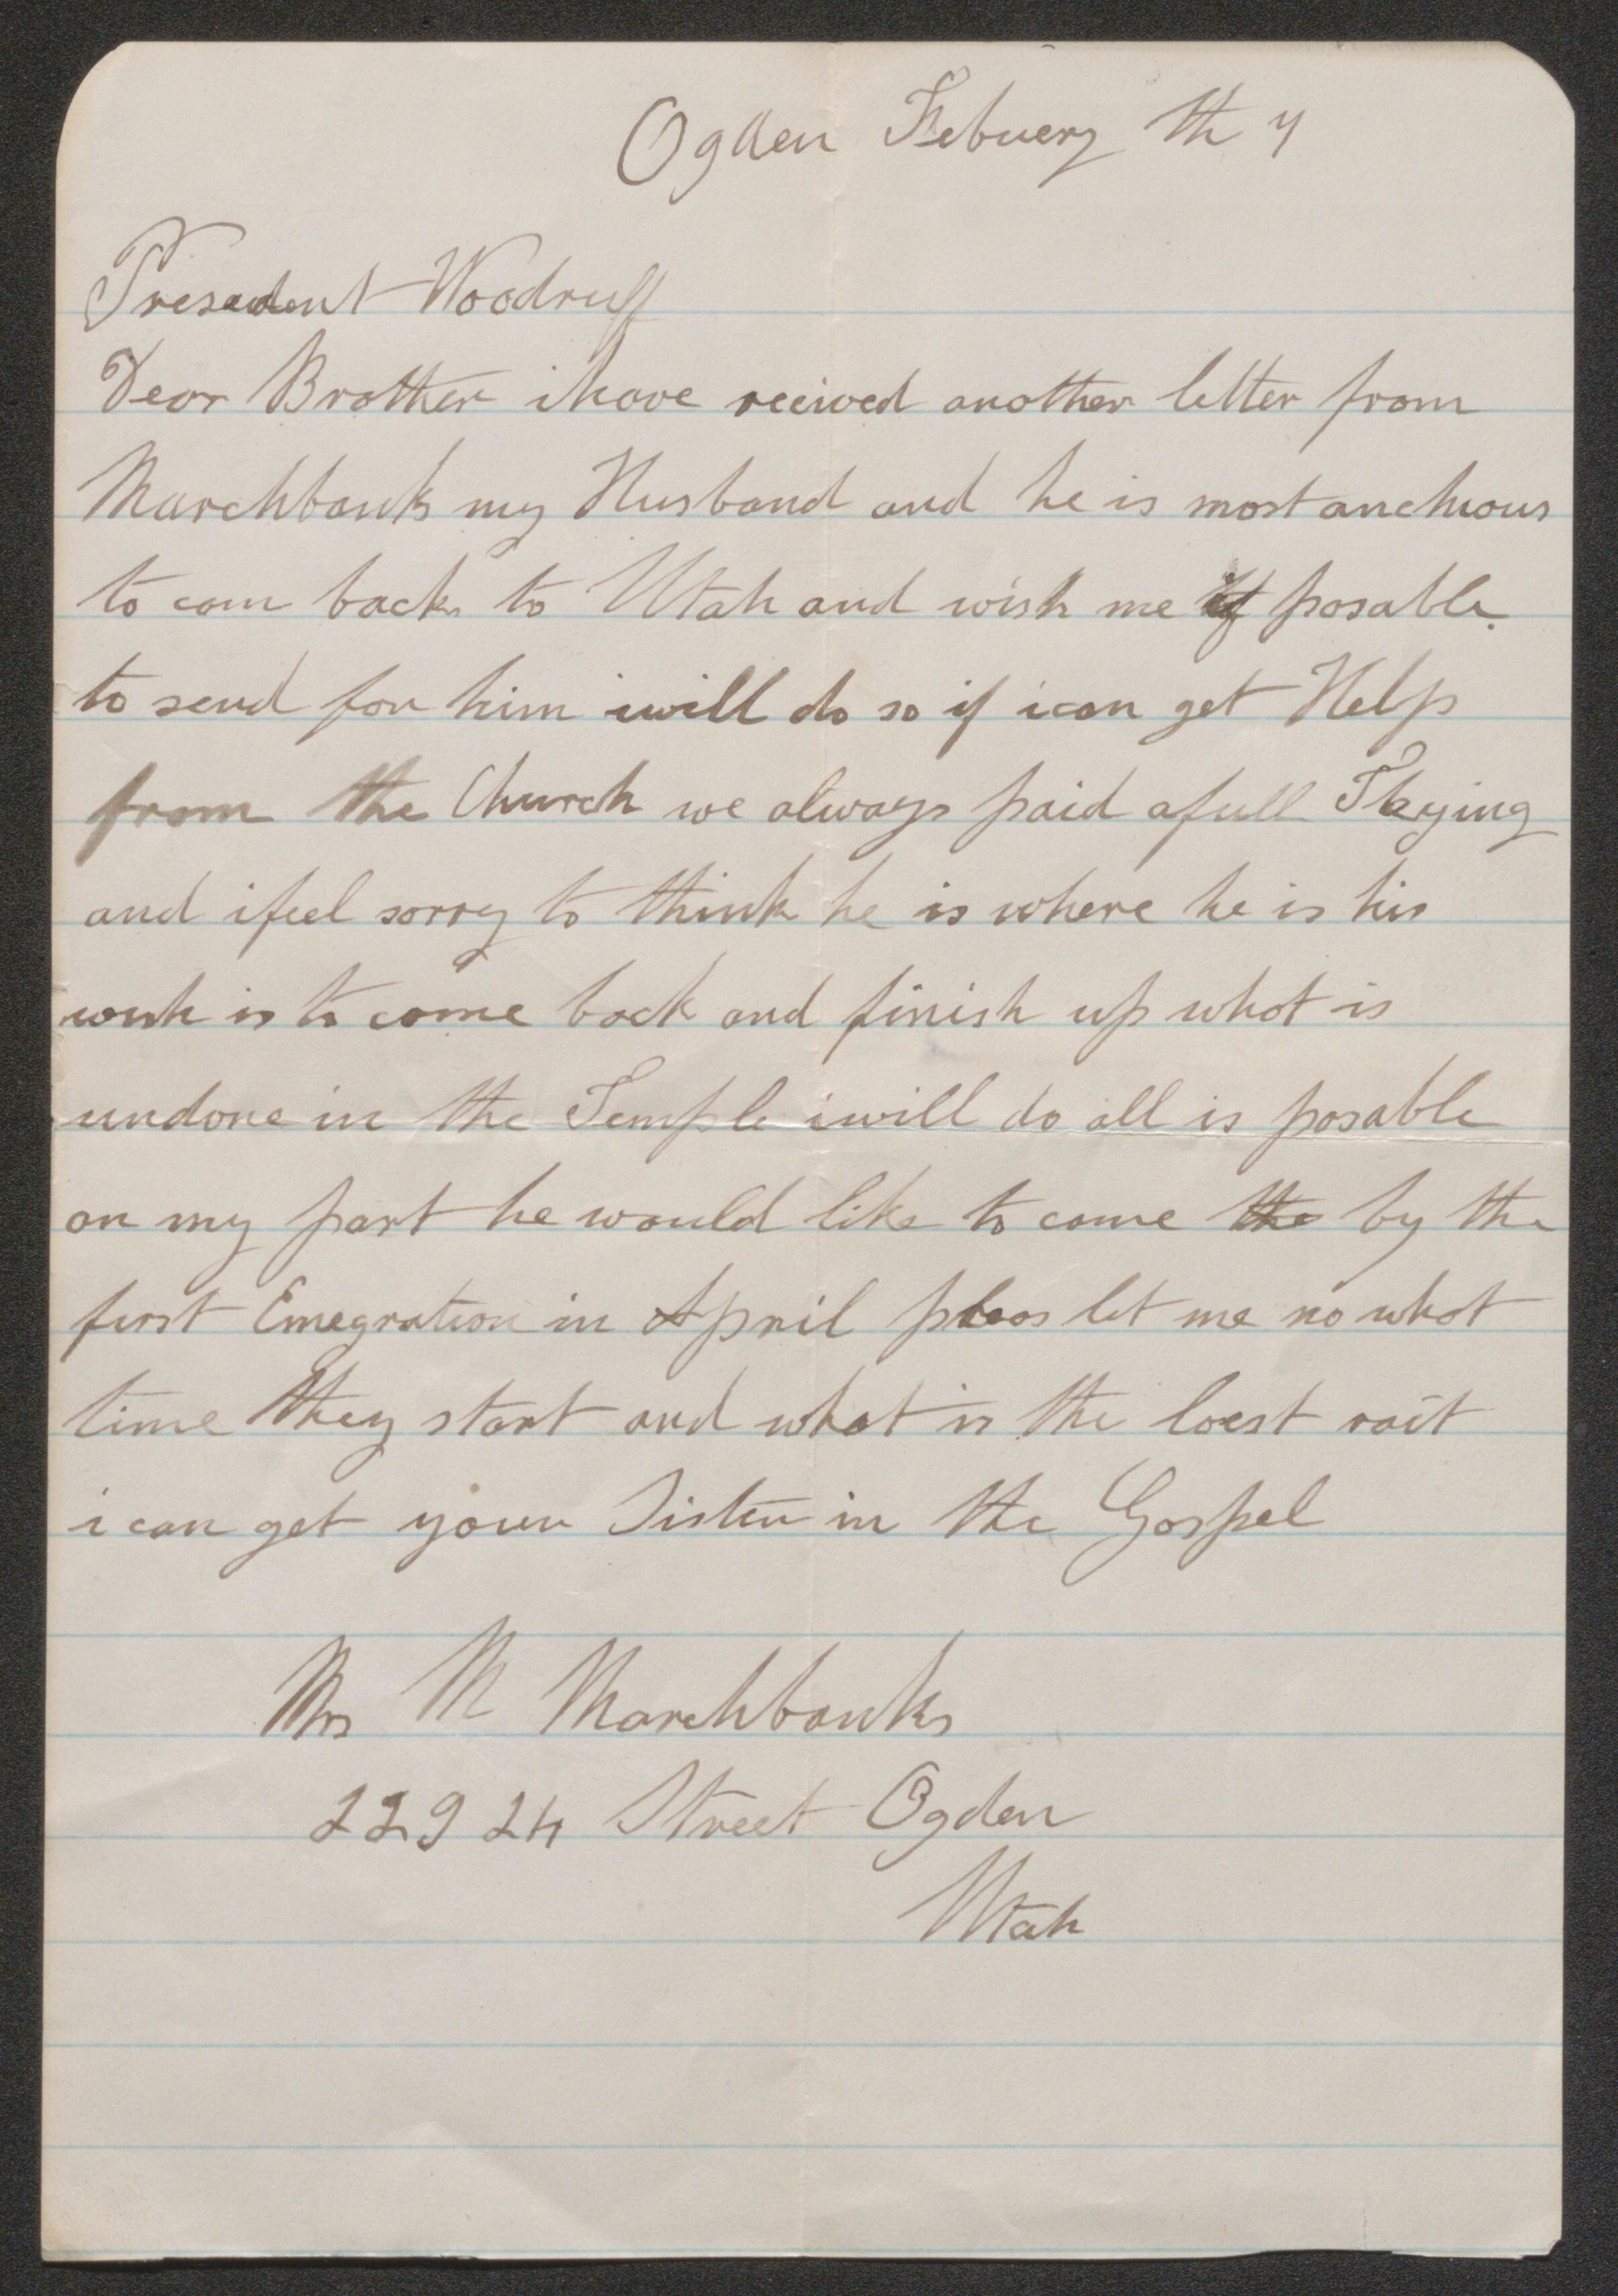 Ogden Febuery th 7
Presedent Woodruff
Dear Brother i have reeived another letter from
Marchbanks my Husband and he is most anchious
to com back to Utah and wish me if posable
to send for him i will do so if i can get Help
from the Church we always paid a full Theying
and i feel sorry to think he is where he is his
wish is to come back and finish up what is
undone in the Temple i will do all is posable
on my part he would like to come the by the
first Emegration in April pleas let me no what
time they start and what is the loest rait
i can get your Sister in the Gospel
Mrs M Marchbanks
229 24 Street Ogden
Utah